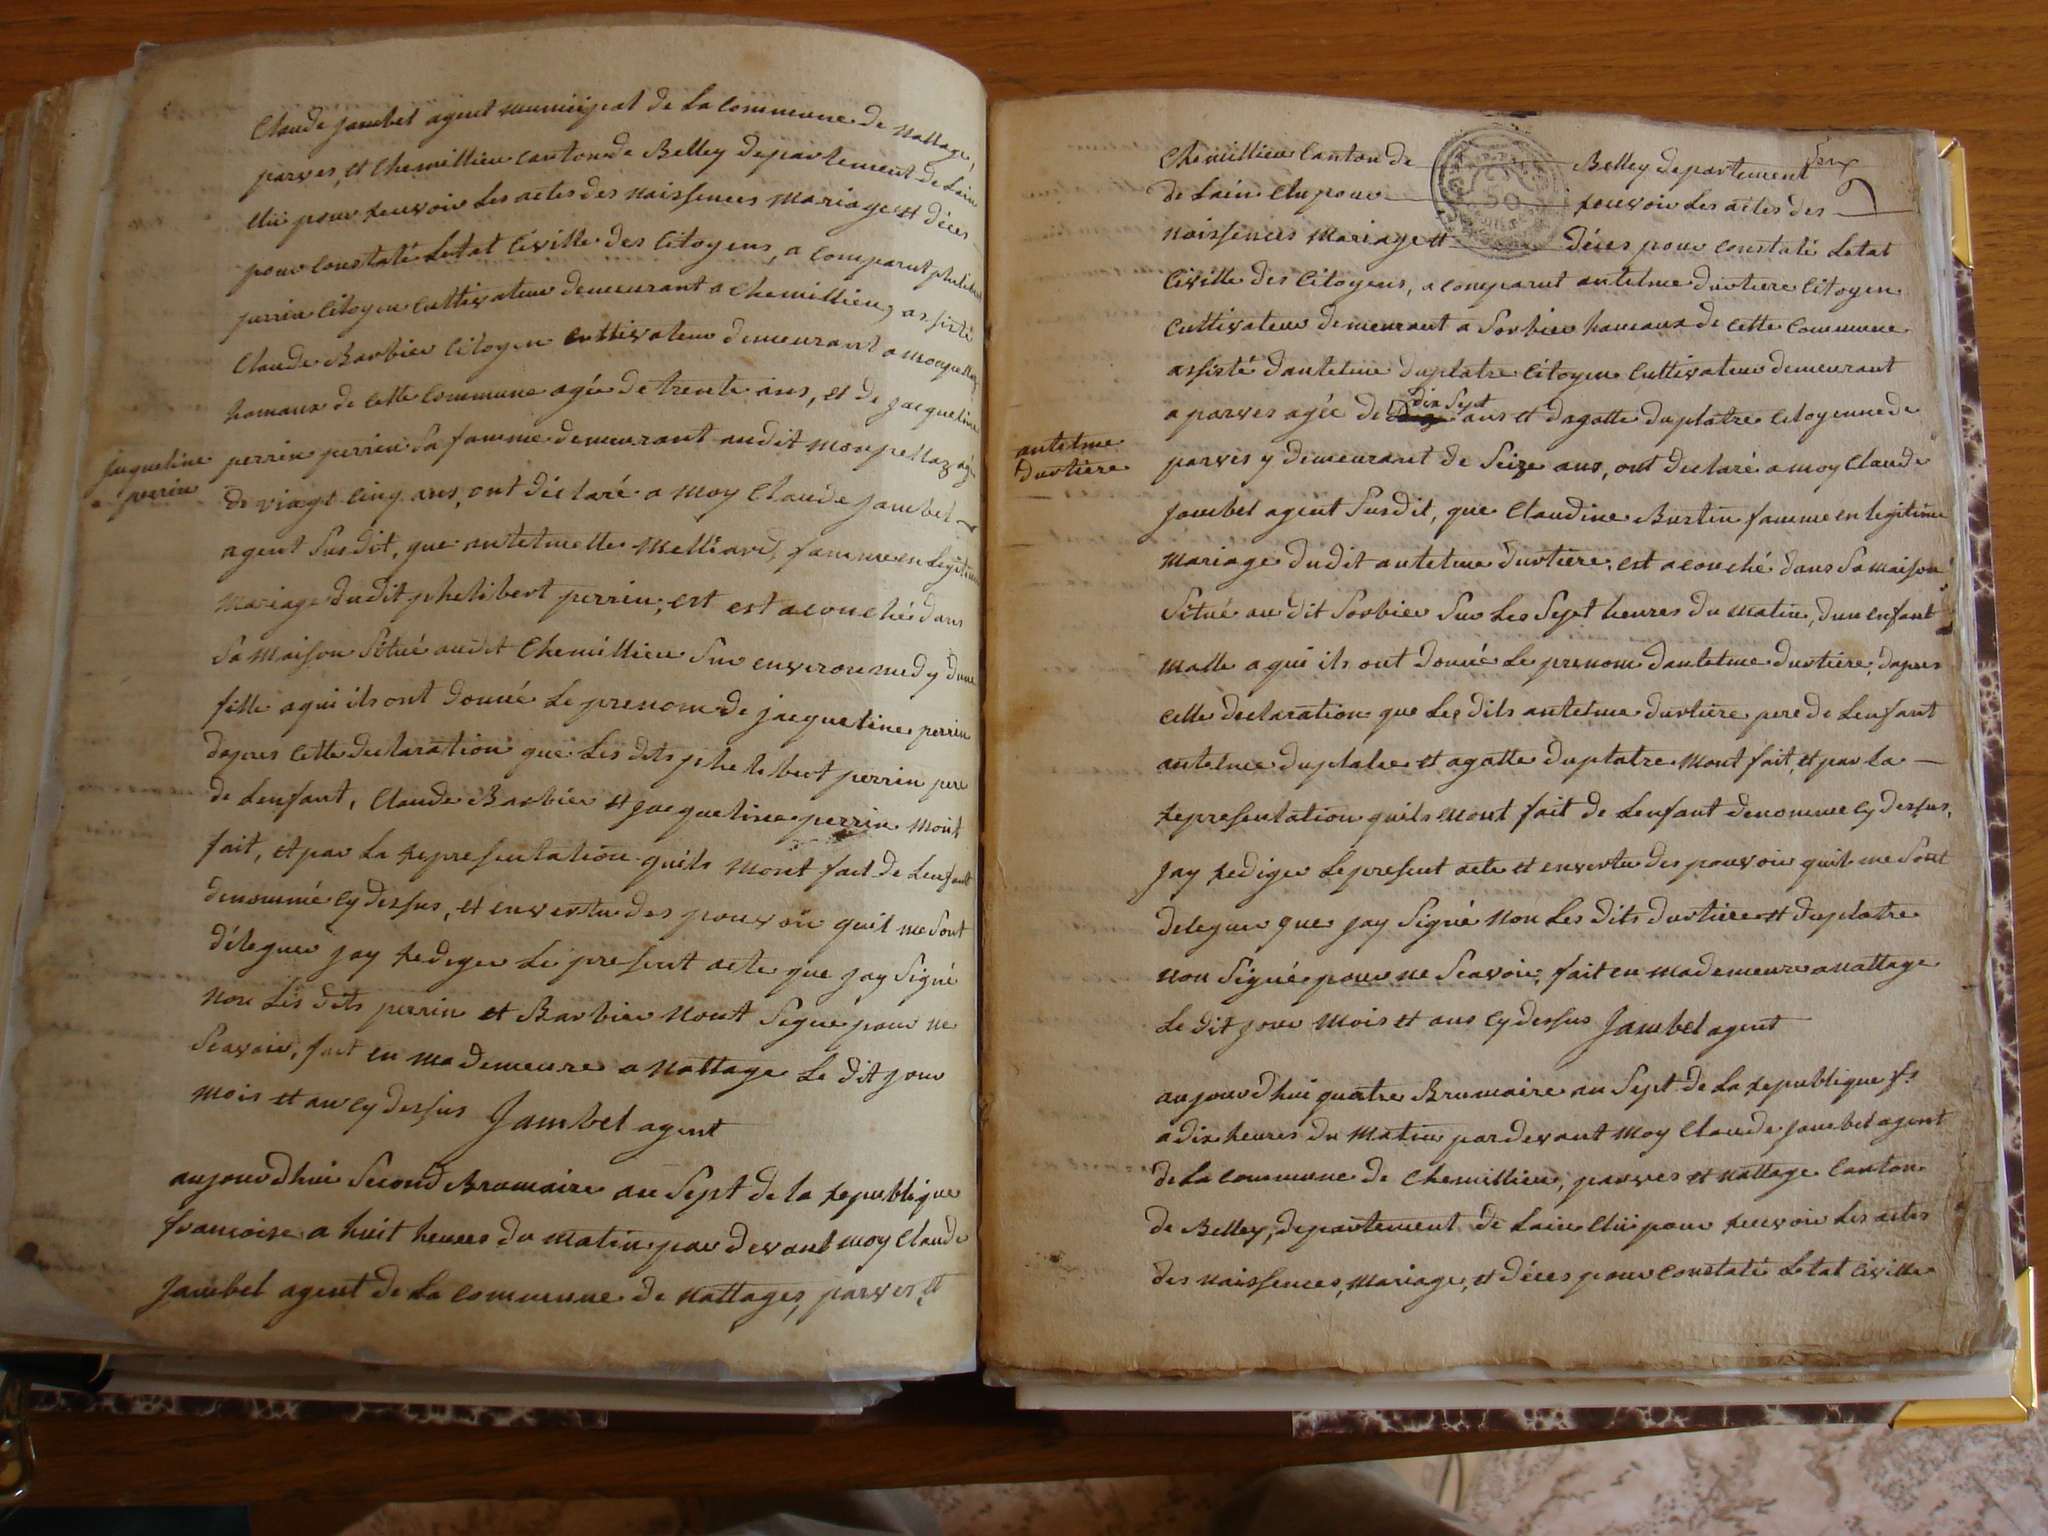 Claude jambel agent municipal de la commune de nattage,
parves, et chemillieu canton de Belley departement de Lain
Elii pour recevoir Les actes des naissences mariage et déces
pour constaté Letat Civille des Citoyens, a comparut phelibert
perrin Citoyen cultivateur demeurant a chemillieu, assisté
Claude Barbier Citoyen cultivateur demeurant a
hamaux de cette commune agée de trente ans, et de jacqueline
jaqueline
perrin
perrin perrin Sa famme demeurant audit monpellaz agé
de vingt cinq ans, ont déclaré a moy Claude jambel
agent Susdit, que antelmette Melliand, famme en Legitime
mariage dudit phelibert perrin, est est acouché dans
Sa maison Situé audit Chemillieu Sur environ medy dune
fille a qui ils ont donné Le prenom de jacqueline perrin
dapres cette declaration que Les dits phelibert perrin pere
de Lenfant, Claude Barbier et jacqueline perrin mont
fait, et par La representation quils mont fait de Lenfant
denommé cy dessus, et en vertu des pouvoir quil me sont
déleguer jay rediger Le present acte que jay Signé
non Les dits perrin et Barbier nont Signé pour ne
Scavoir, fait en ma demeure a nattage Le dit jour
mois et an cy dessus Jambel agent
aujourdhui Second Brumaire an Sept de la republique
francoise a huit heures du matin par devant moy Claude
Jambel agent de La commune de nattages, parves, et
Chemillieu Canton de Belley departement
de Lain Elu pour recevoir Les actes des
naissences mariage et déces pour constaté Letat
Civille des Citoyens, a comparut antelme durtiere Citoyen
Cultivateur demeurant a Sorbier hamaux de cette Commune
assisté dantelme duplatre Citoyen Cultivateur demeurant
dix Sept
a parves agée de ans et dagatte duplatre citoyenne de
antelme
durtiere
parves y demeurant de Seize ans, ont declaré a moy Claude
jambel agent Susdit, que Claudine Burtin famme en legitime
mariage dudit antelme durtiere, est acouché dans Sa maison
Situé au dit Sorbier Sur Les Sept heures du matin, dun enfant
malle a qui ils ont donné Le prenom dantelme durtiere, dapres
cette declaration que Les dits antelme durtiere pere de Lenfant
antelme duplatre et agatte duplatre mont fait, et par la
representation quils mont fait de Lenfant denomme cy dessus,
jay rediger Le present acte et en vertu des pouvoir quil me sont
deleguer que jay Signé non Les dits durtiere et duplatre
non Signé pour ne Scavoir, fait en ma demeure a nattage
Le dit jour mois et ans cy dessus Jambel agent
aujourdhui quatre Brumaire an Sept de La republique f.
a dix heures du matin pardevant moy Claude jambel agent
de La commune de Chemillieu, parves et nattage Canton
de Belley, departement de Lain Elii pour recevoir Les actes
des naissences, mariage, et déces pour constaté Letat Civille